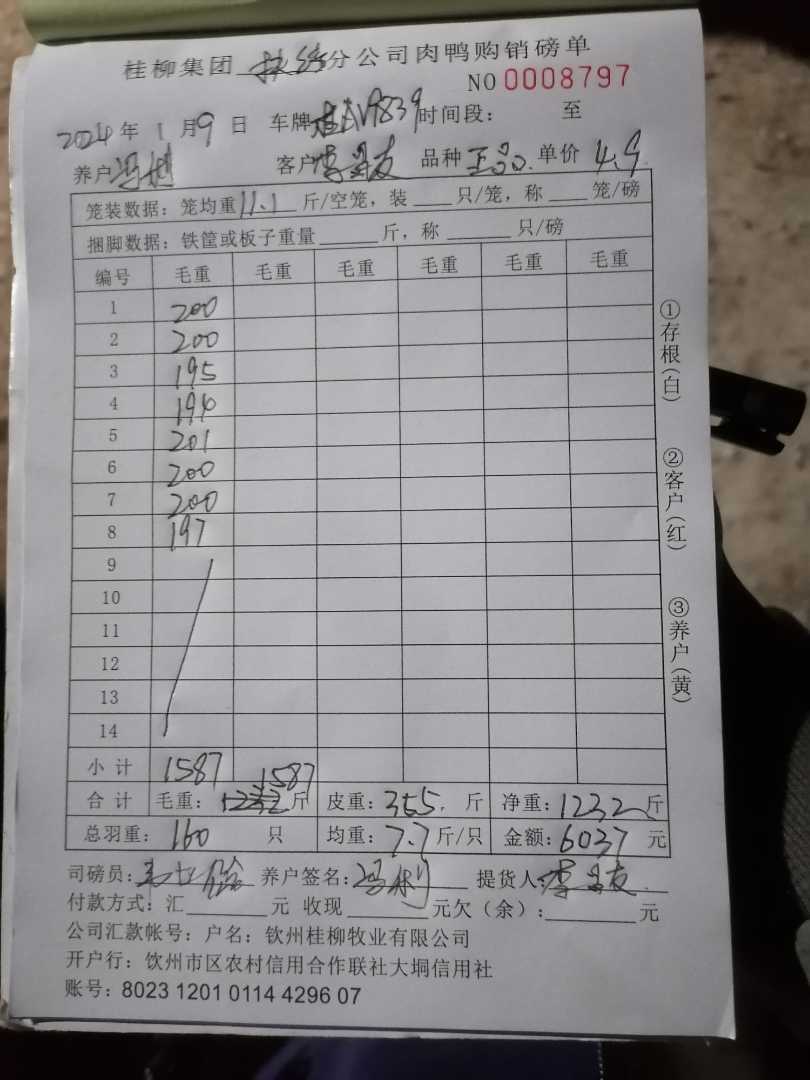 桂柳集团 分公司肉鸭购销磅单
NO 0008797
2024 年 1 月 9 日 车牌 桂AV9839 时间段： 至
养户 冯 客户 李 友 品种 正品 单价 4.9
笼装数据：笼均重 11.1 斤/空笼，装 只/笼，称 笼/磅
捆脚数据：铁筐或板子重量 斤，称 只/磅
编号 毛重 毛重 毛重 毛重 毛重 毛重
1 200
2 200
3 195
4 194
5 201
6 200
7 200
8 197
9
10
11
12
13
14
小计 1587 1587
合计 毛重： 1232 斤 皮重：355. 斤 净重：1232 斤
总羽重：160 只 均重：7.7 斤/只 金额：6037 元
司磅员： 养户签名：冯 提货人：李 友
付款方式：汇 元 收现 元欠（余）： 元
公司汇款帐号：户名：钦州桂柳牧业有限公司
开户行：饮州市区农村信用合作联社大垌信用社
账号：8023 1201 0114 4296 07
①存根（白）
②客户（红）
③养户（黄）